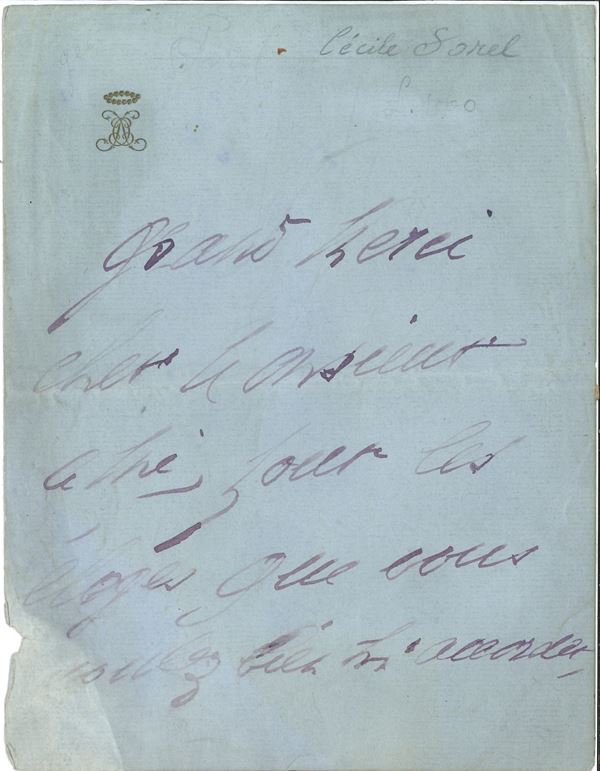 Cécile Sorel
Grand Merci
cher Monsieur
ami, pour les
éloges que vous
voulez bien m'accorder,